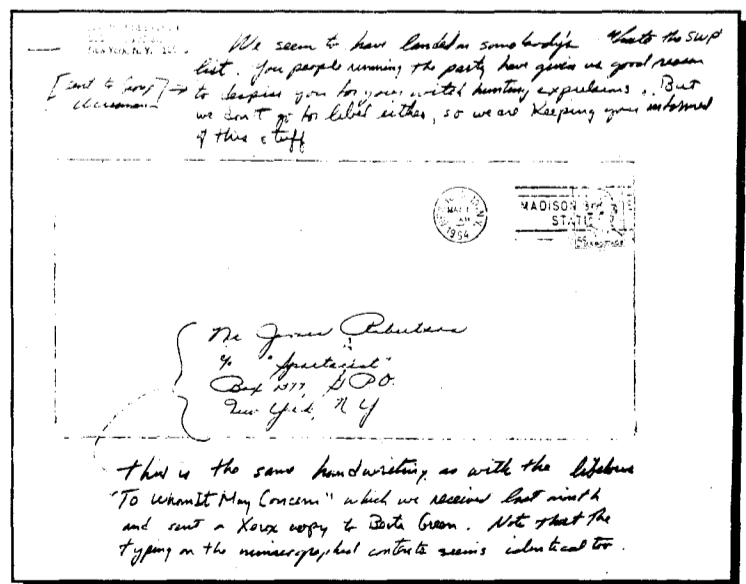 NEW YORK, N.Y.
We seem to have landed on somebody's hate the SWP
list. You people running the party have given us good reason
[sent to Group] → to despise you for your witch hunting expulsions. But
we don't go for libel either, so we are keeping you informed
of this stuff
MAR 1
AM
1964
MADISON SQ
STATI
Mr James Robertson
c/o "Spartacist"
Box 1377, G.P.O.
New York, N Y
This is the same handwriting as with the libelous
"To Whom It May Concern" which we received last month
and sent a Xerox copy to Berta Green. Note that the
typing on the mimeographed contents seems identical too.